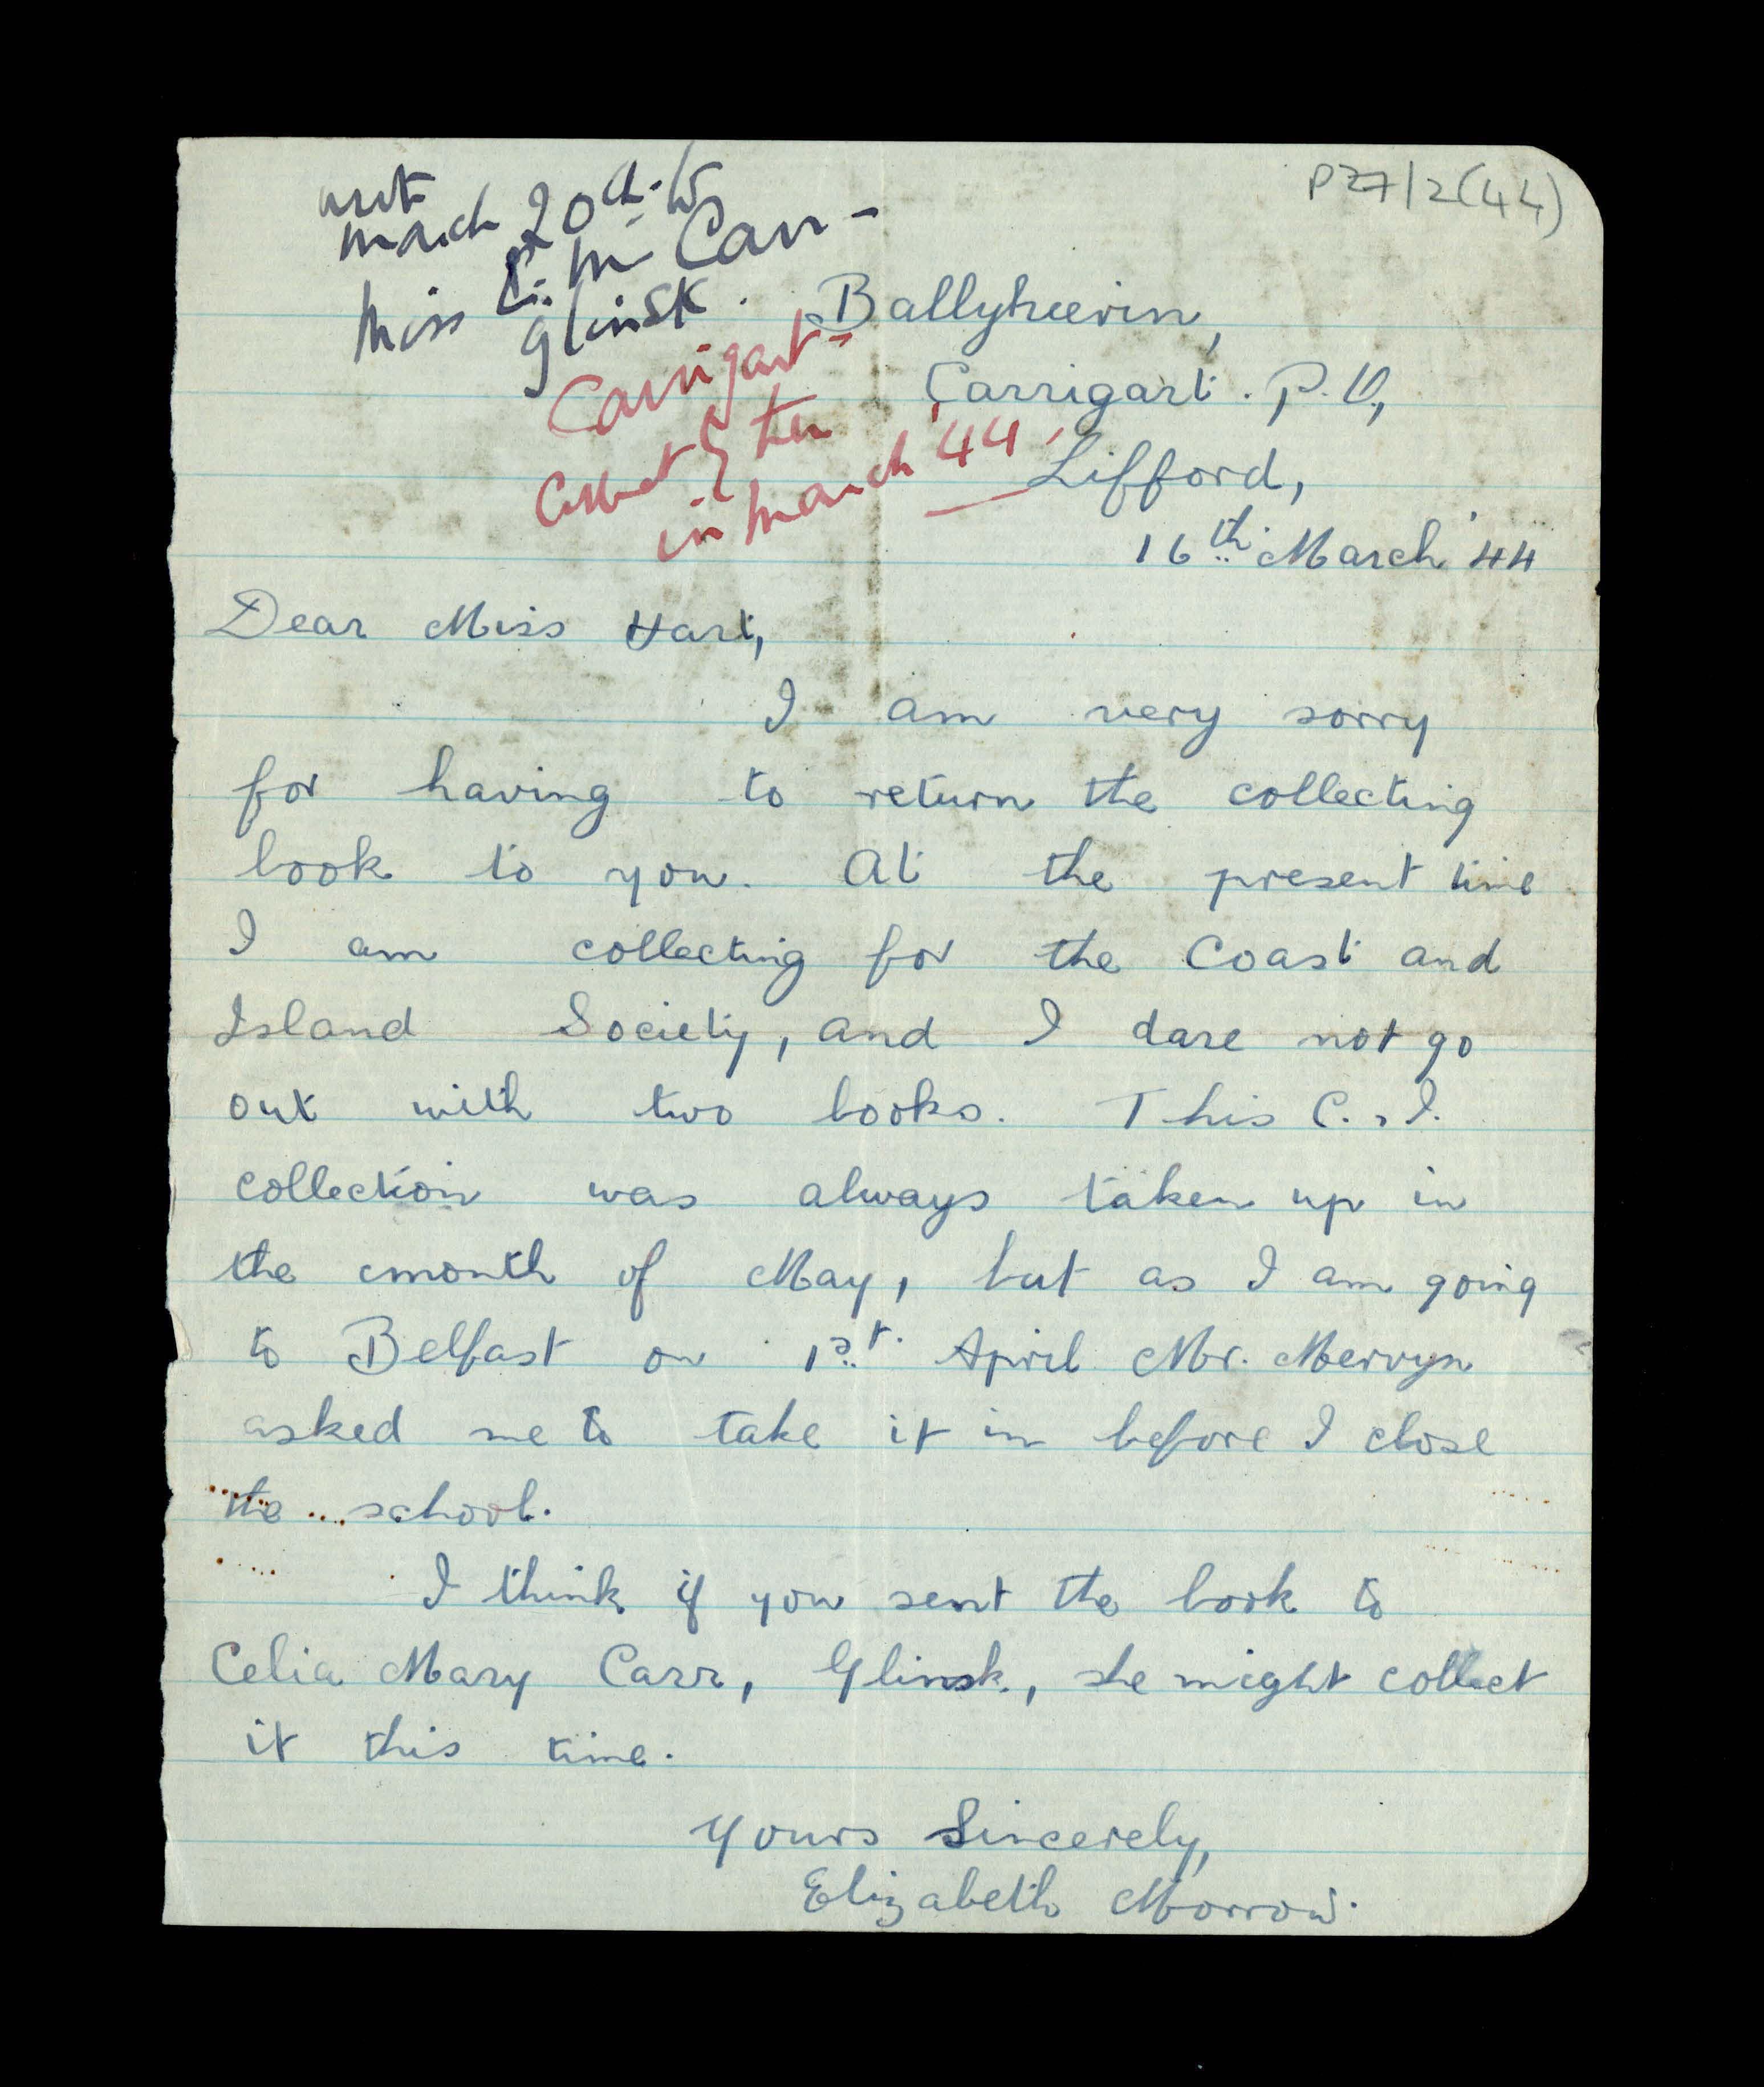 P27/2(44)
writ
March 20th to
Miss C. M. Carr -
Glinsk.
Carrigart -
in March '44
Ballyheerin,
Carrigart. P.O,
Lifford,
16th March '44
Dear Miss Hart,
I am very sorry
for having to return the collecting
book to you. At the present time
I am collecting for the Coast and
Island Society, and I dare not go
out with two books. This C. & I.
collection was always taken up in
the month of May, but as I am going
to Belfast on 1st. April Mr. Mervyn
asked me to take it in before I close
the school.
I think if you sent the book to
Celia Mary Carr, Glinsk, she might collect
it this time.
Yours Sincerely,
Elizabeth Morrow.